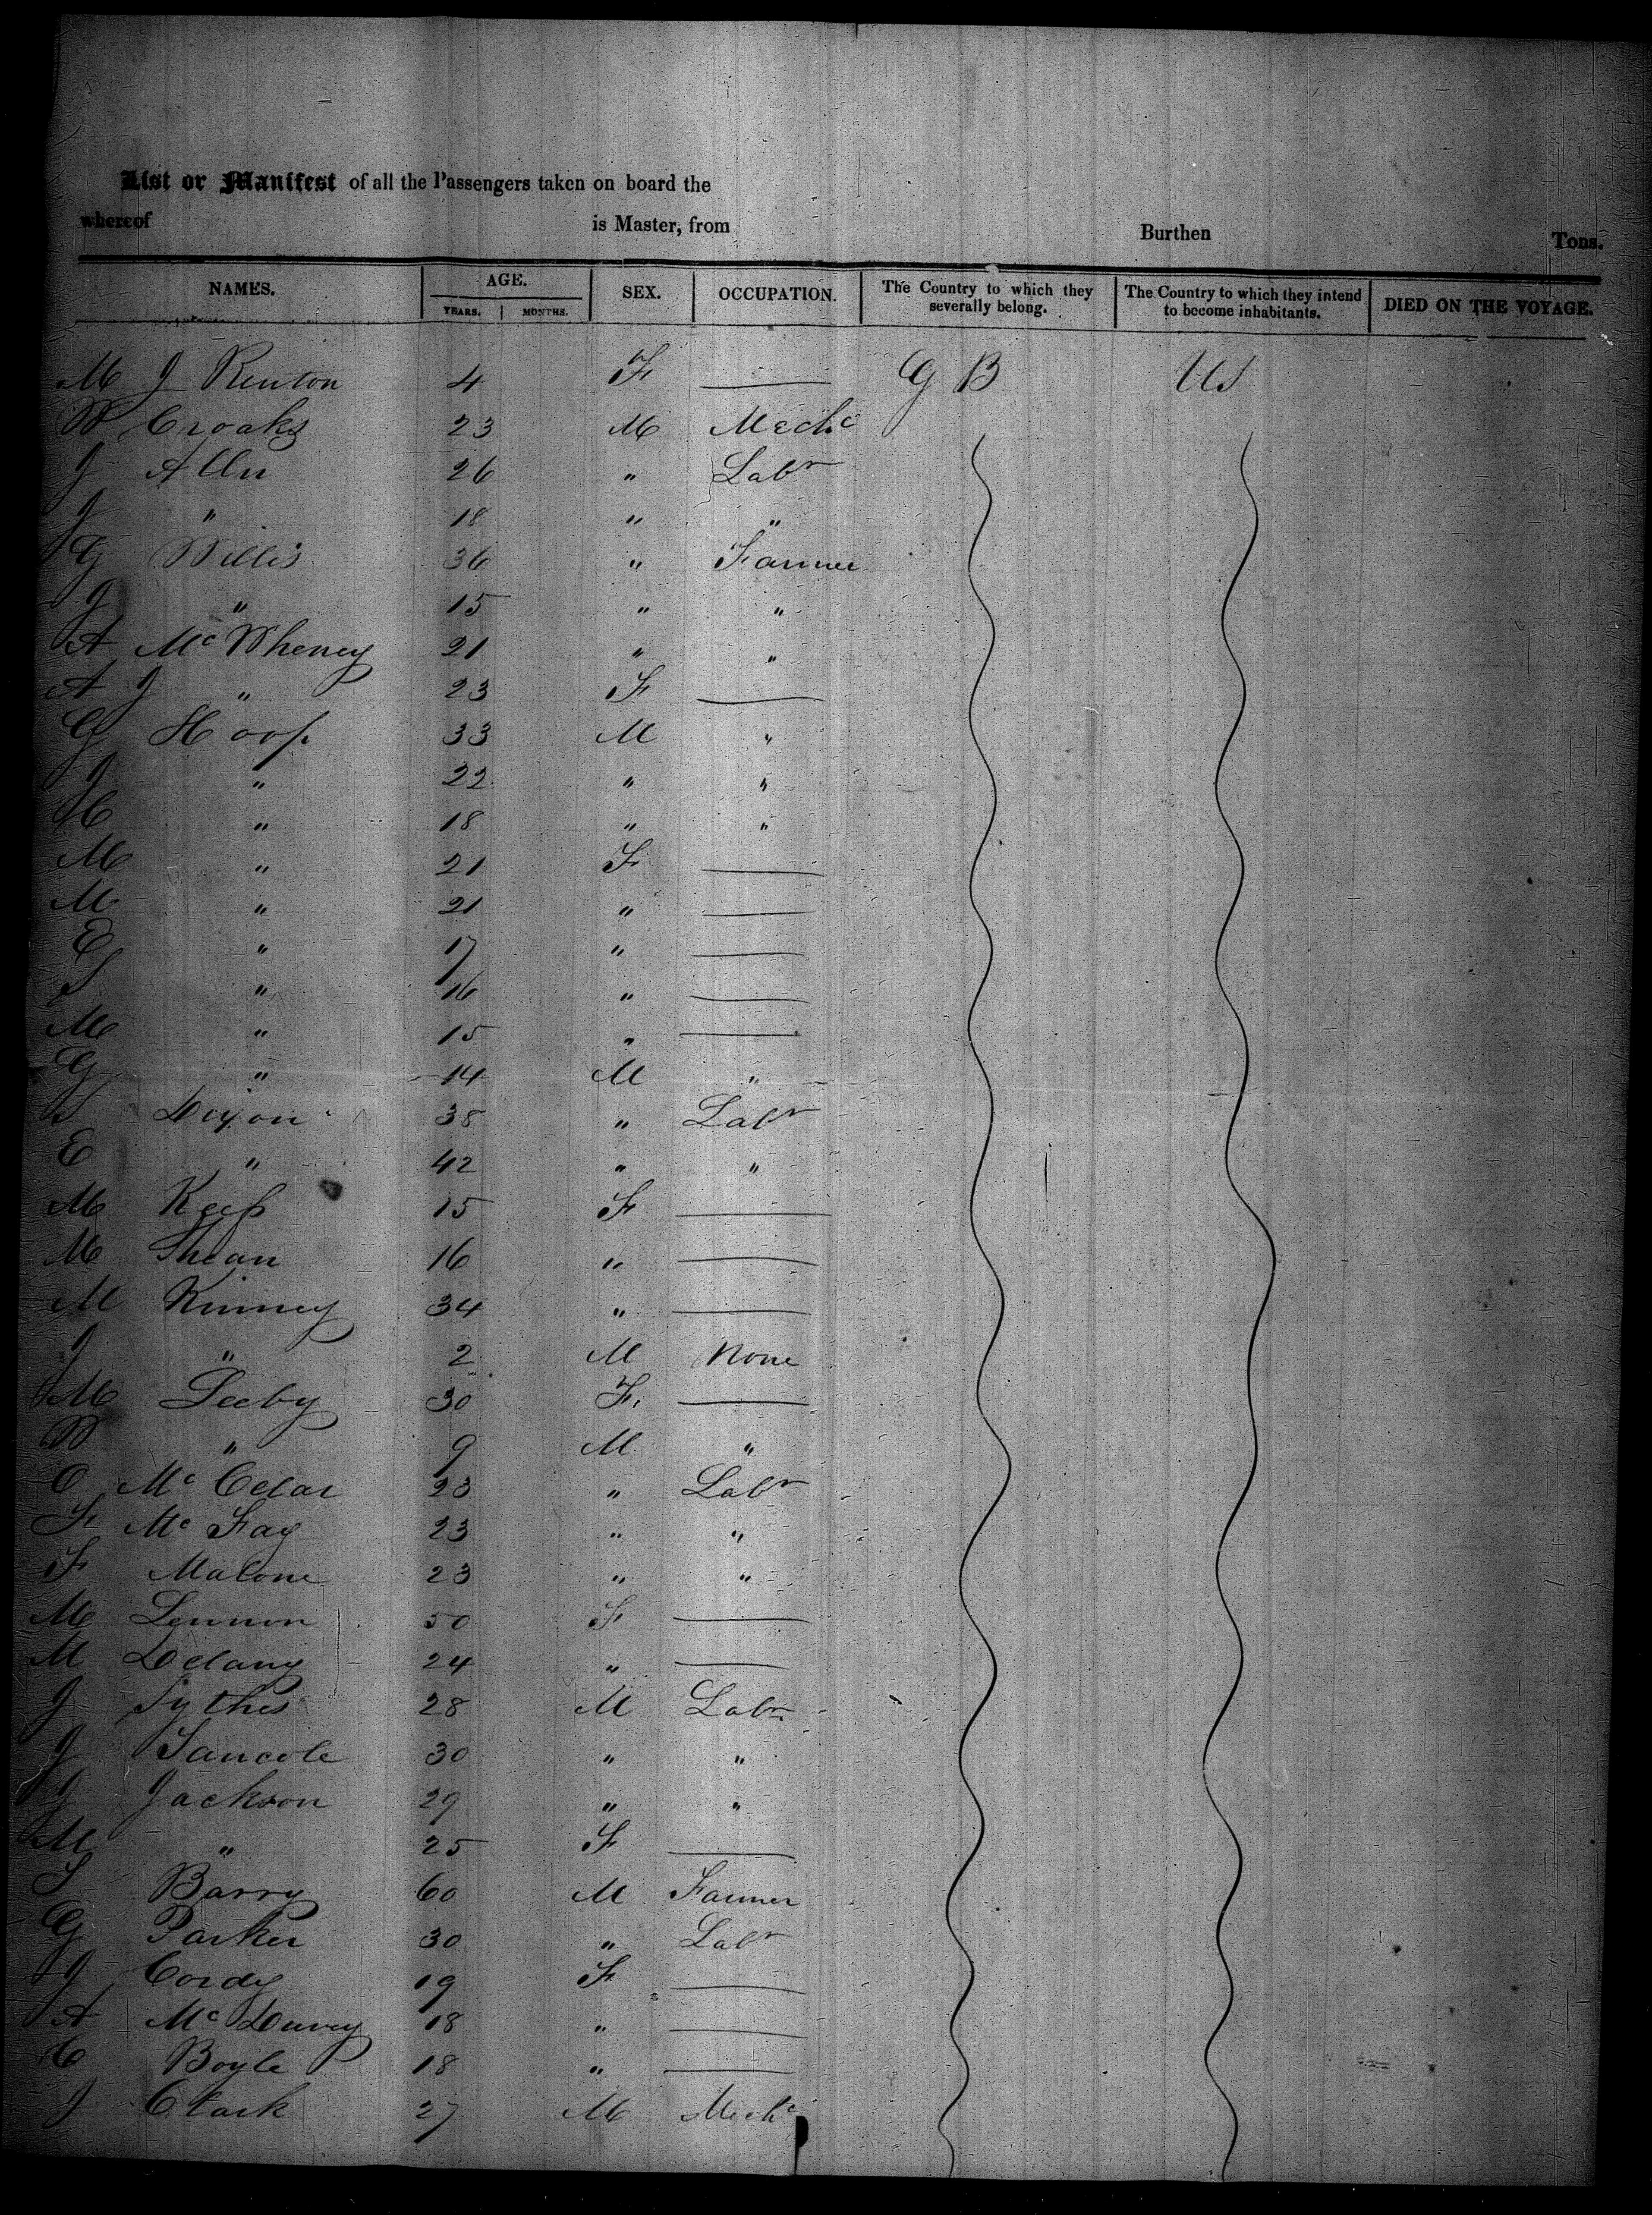 List or Manifest of all the Passengers taken on board the
whereof is Master, from Burthen Tons.
NAMES. AGE. SEX. OCCUPATION. The Country to which they severally belong. The Country to which they intend to become inhabitants. DIED ON THE VOYAGE.
YEARS. MONTHS.
M J Renton 4 F — G B US
W Croaks 23 M Mechc
J Allen 26 " Labr
J " 18 " "
G Willis 36 " Farmer
J " 15 " "
A Mc Wheney 21 " "
A J " 23 F —
G Hoop 33 M "
J " 22 " "
H " 18 " "
M " 21 F —
M " 21 " —
E " 17 " —
S " 16 " —
M " 15 " —
G " 14 M "
S Dixon 38 " Labr
E " 42 " "
M Keefs 15 F —
M Shean 16 " —
M Kinney 34 " —
J " 2 M None
M Peeby 30 F. —
W " 9 M "
C Mc Celar 23 " Labr
F Mc Fay 23 " "
F Malone 23 " "
M Lennon 50 F —
M Delany 24 " —
J Sythes 28 M Labr
J 30 " "
J Jackson 29 " "
M " 25 F —
S Barry 60 M Farmer
G Parker 30 " Labr
J Cordy 19 F —
A Mc 18 " —
C Boyle 18 " —
J Clark 27 M Mechc